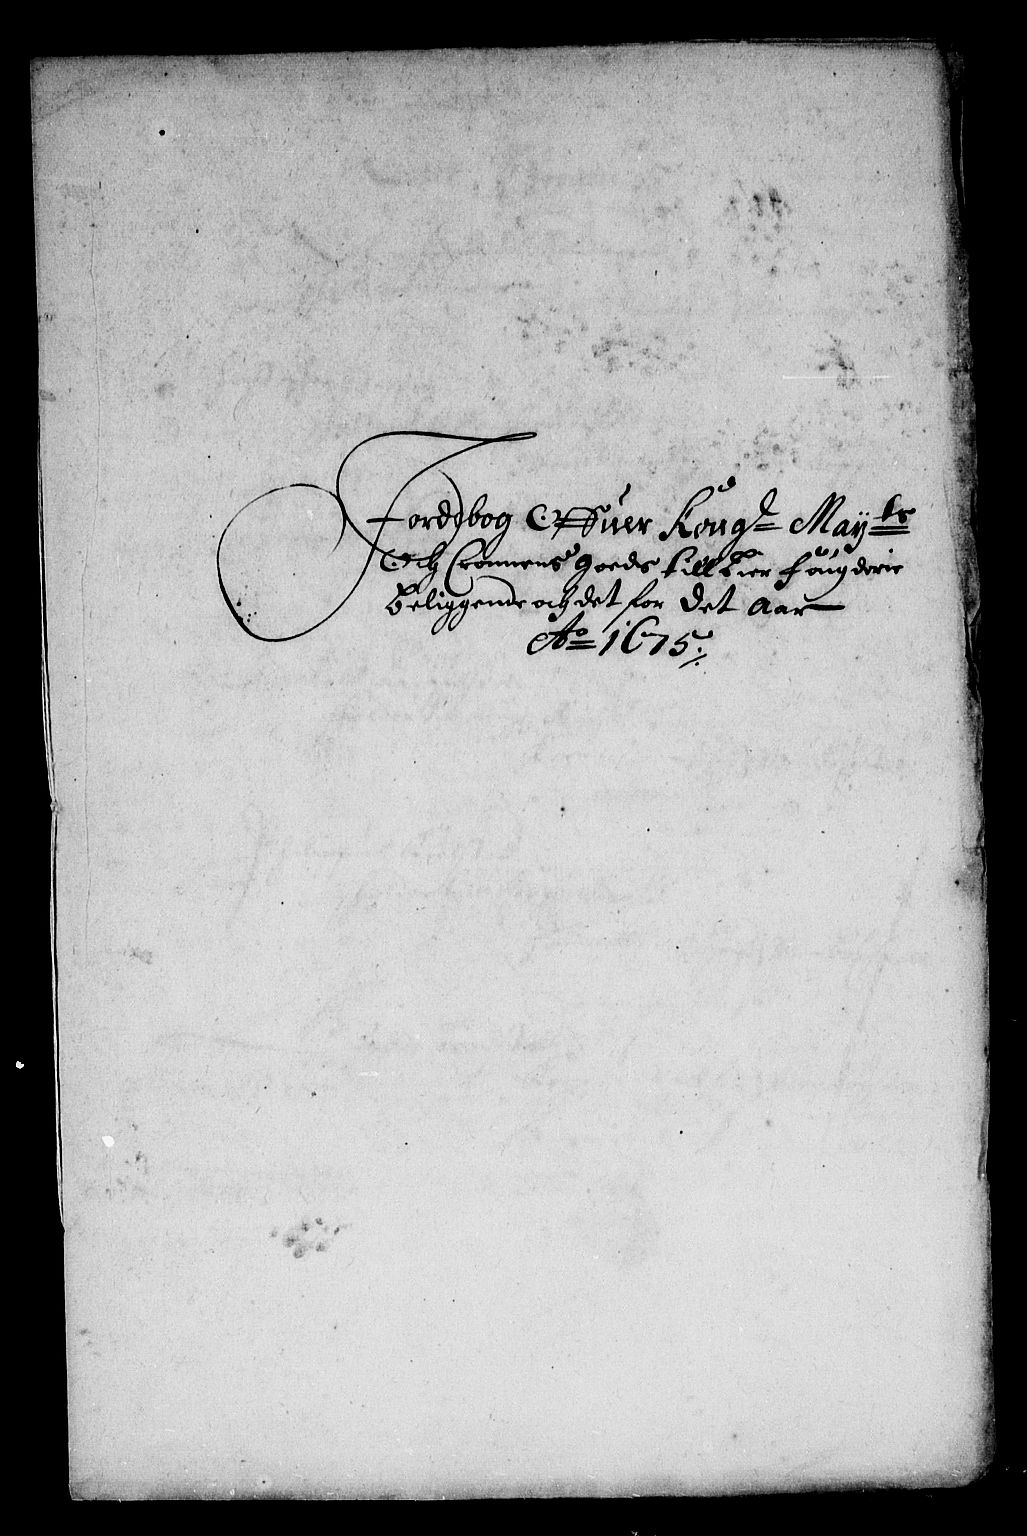 Jordbog Offuer Kong: Mayts
Och Cronnens goeds till Lier fougderie
Beliggende och det for det Aar
Ao 1675